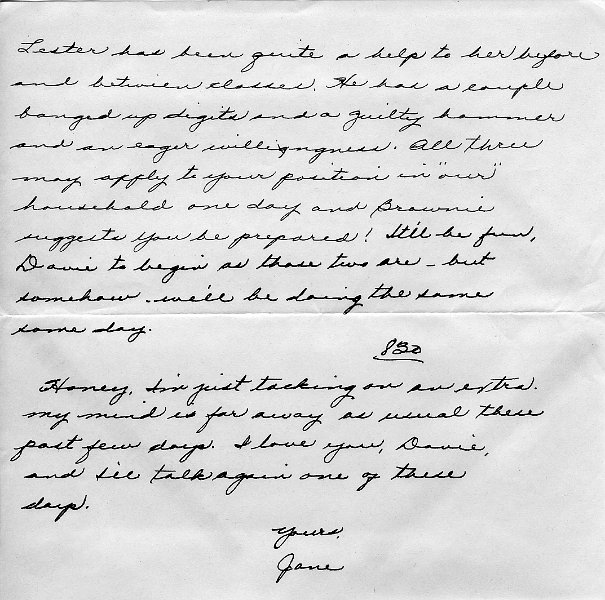 Lester has been quite a help to her before
and between classes. He has a couple
banged up digits and a guilty hammer
and an eager willingngness. All three
may apply to your position in "our"
household one day and Brownie
suggests you be prepared! It'll be fun,
Davie to begin as those two are - but
somehow - we'll be doing the same
some day.
830
Honey, I'm just tacking on an extra.
my mind is far away as usual these
past few days. I love you, Davie,
and I'll talk again one of these
days.
Yours,
Jane